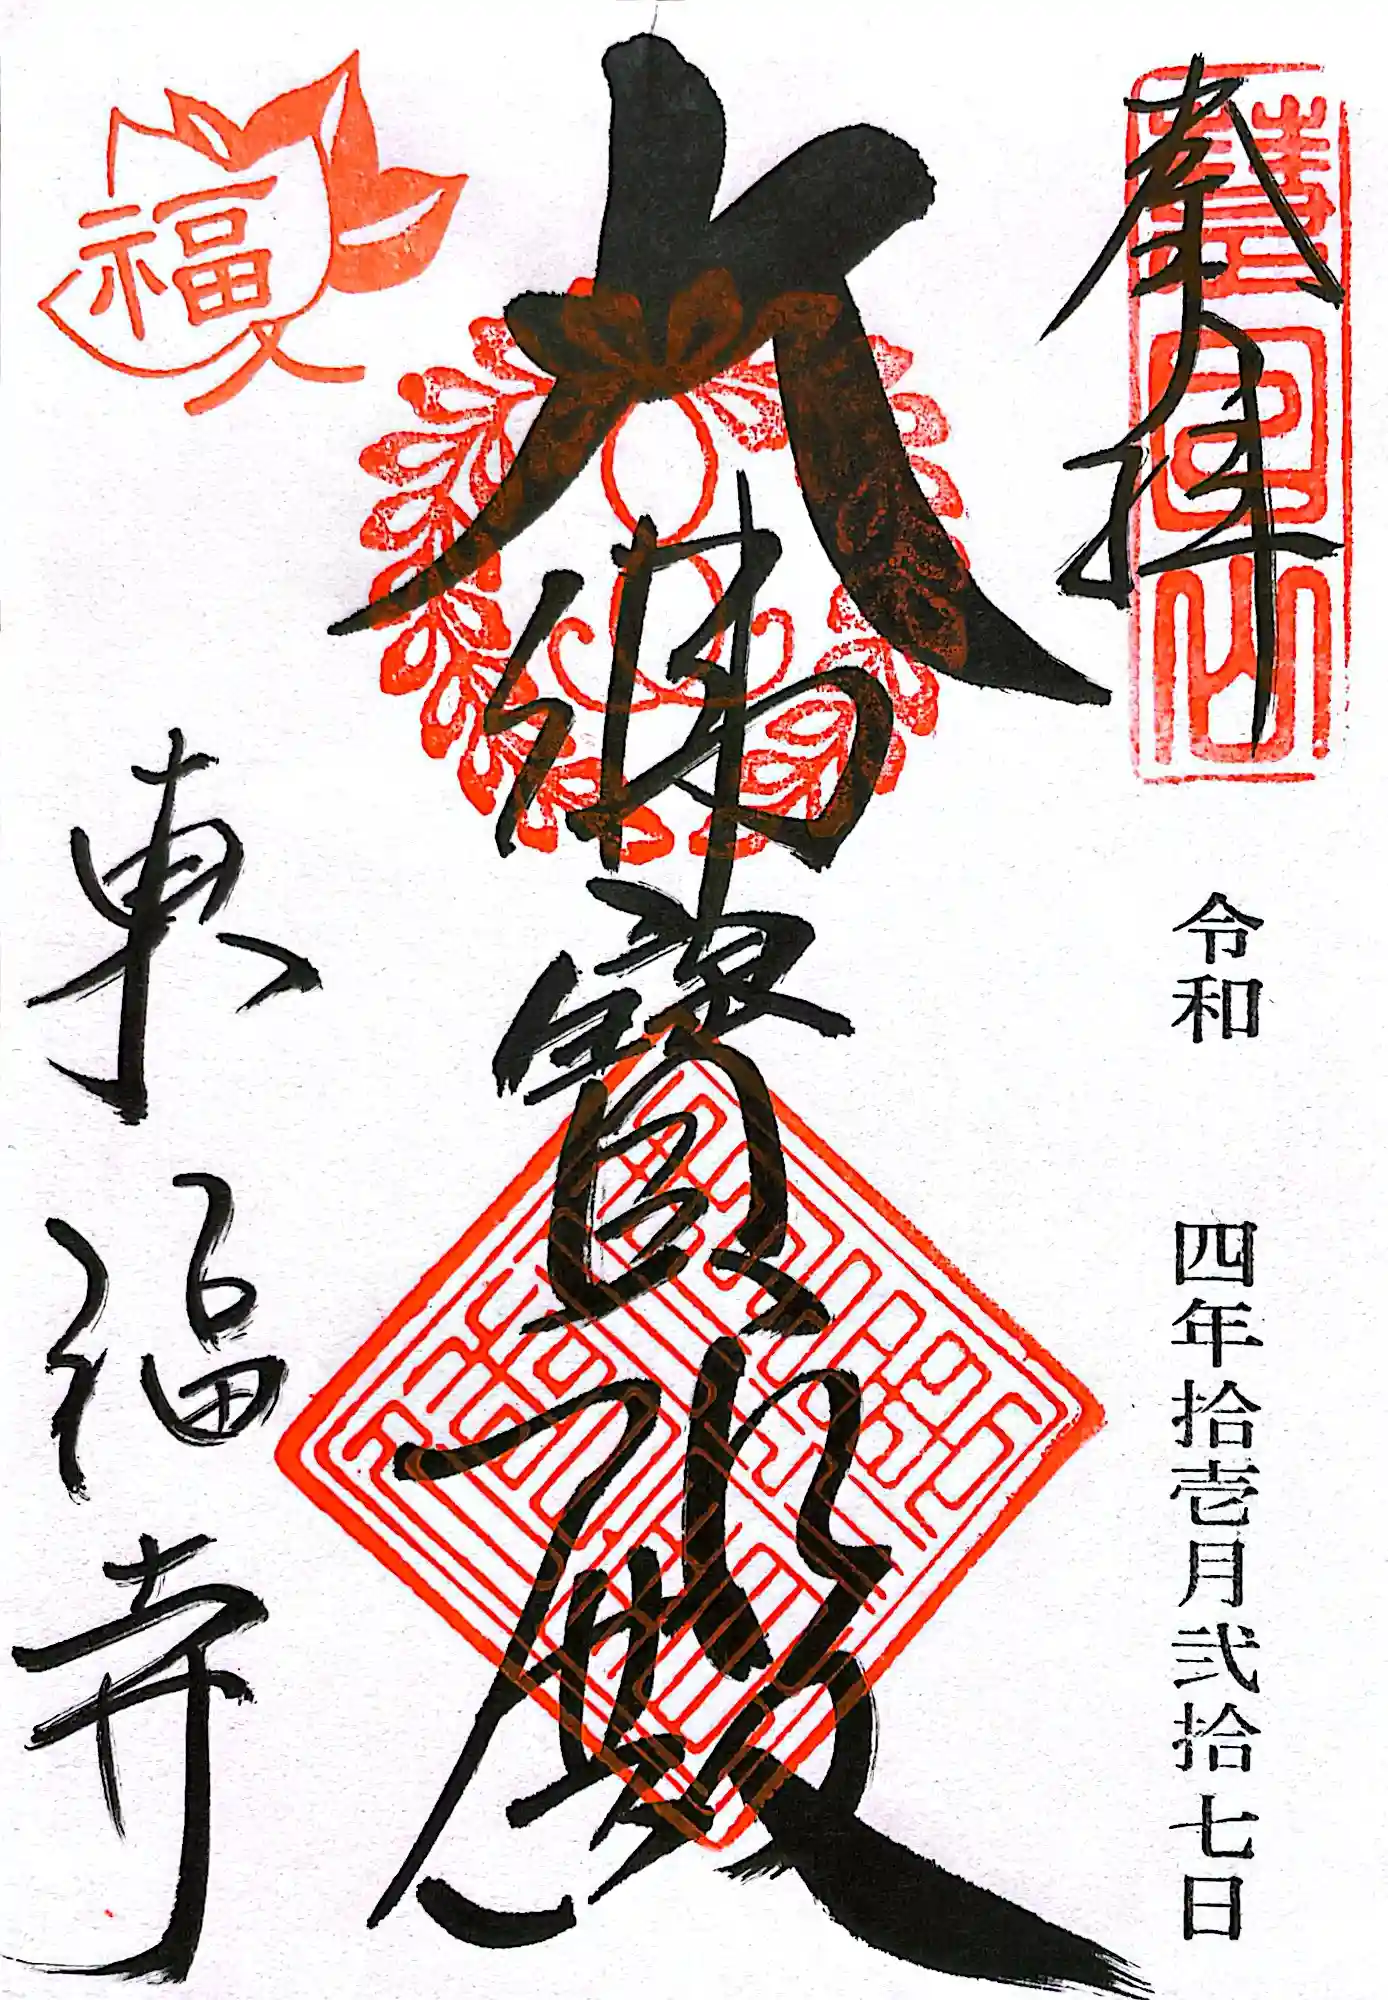 奉拝
慧日山
令和 四年拾壱月弐拾七日
大佛寳殿
福
東福寺